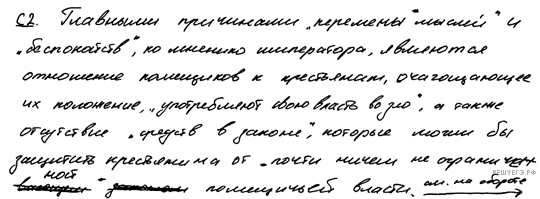 С2. Главными причинами „перемены мыслей“ и
„беспокойств“, по мнению императора, являются
отношение помещиков к крестьянам, отягощающее
их положение, „употребляют свою власть во зло“, а также
отсутствие „средств в законе“, которые могли бы
защитить крестьянина от „почти ничем не ограничен
РЕШУЕГЭ.РФ
ной“ помещичьей власти. см. на обороте